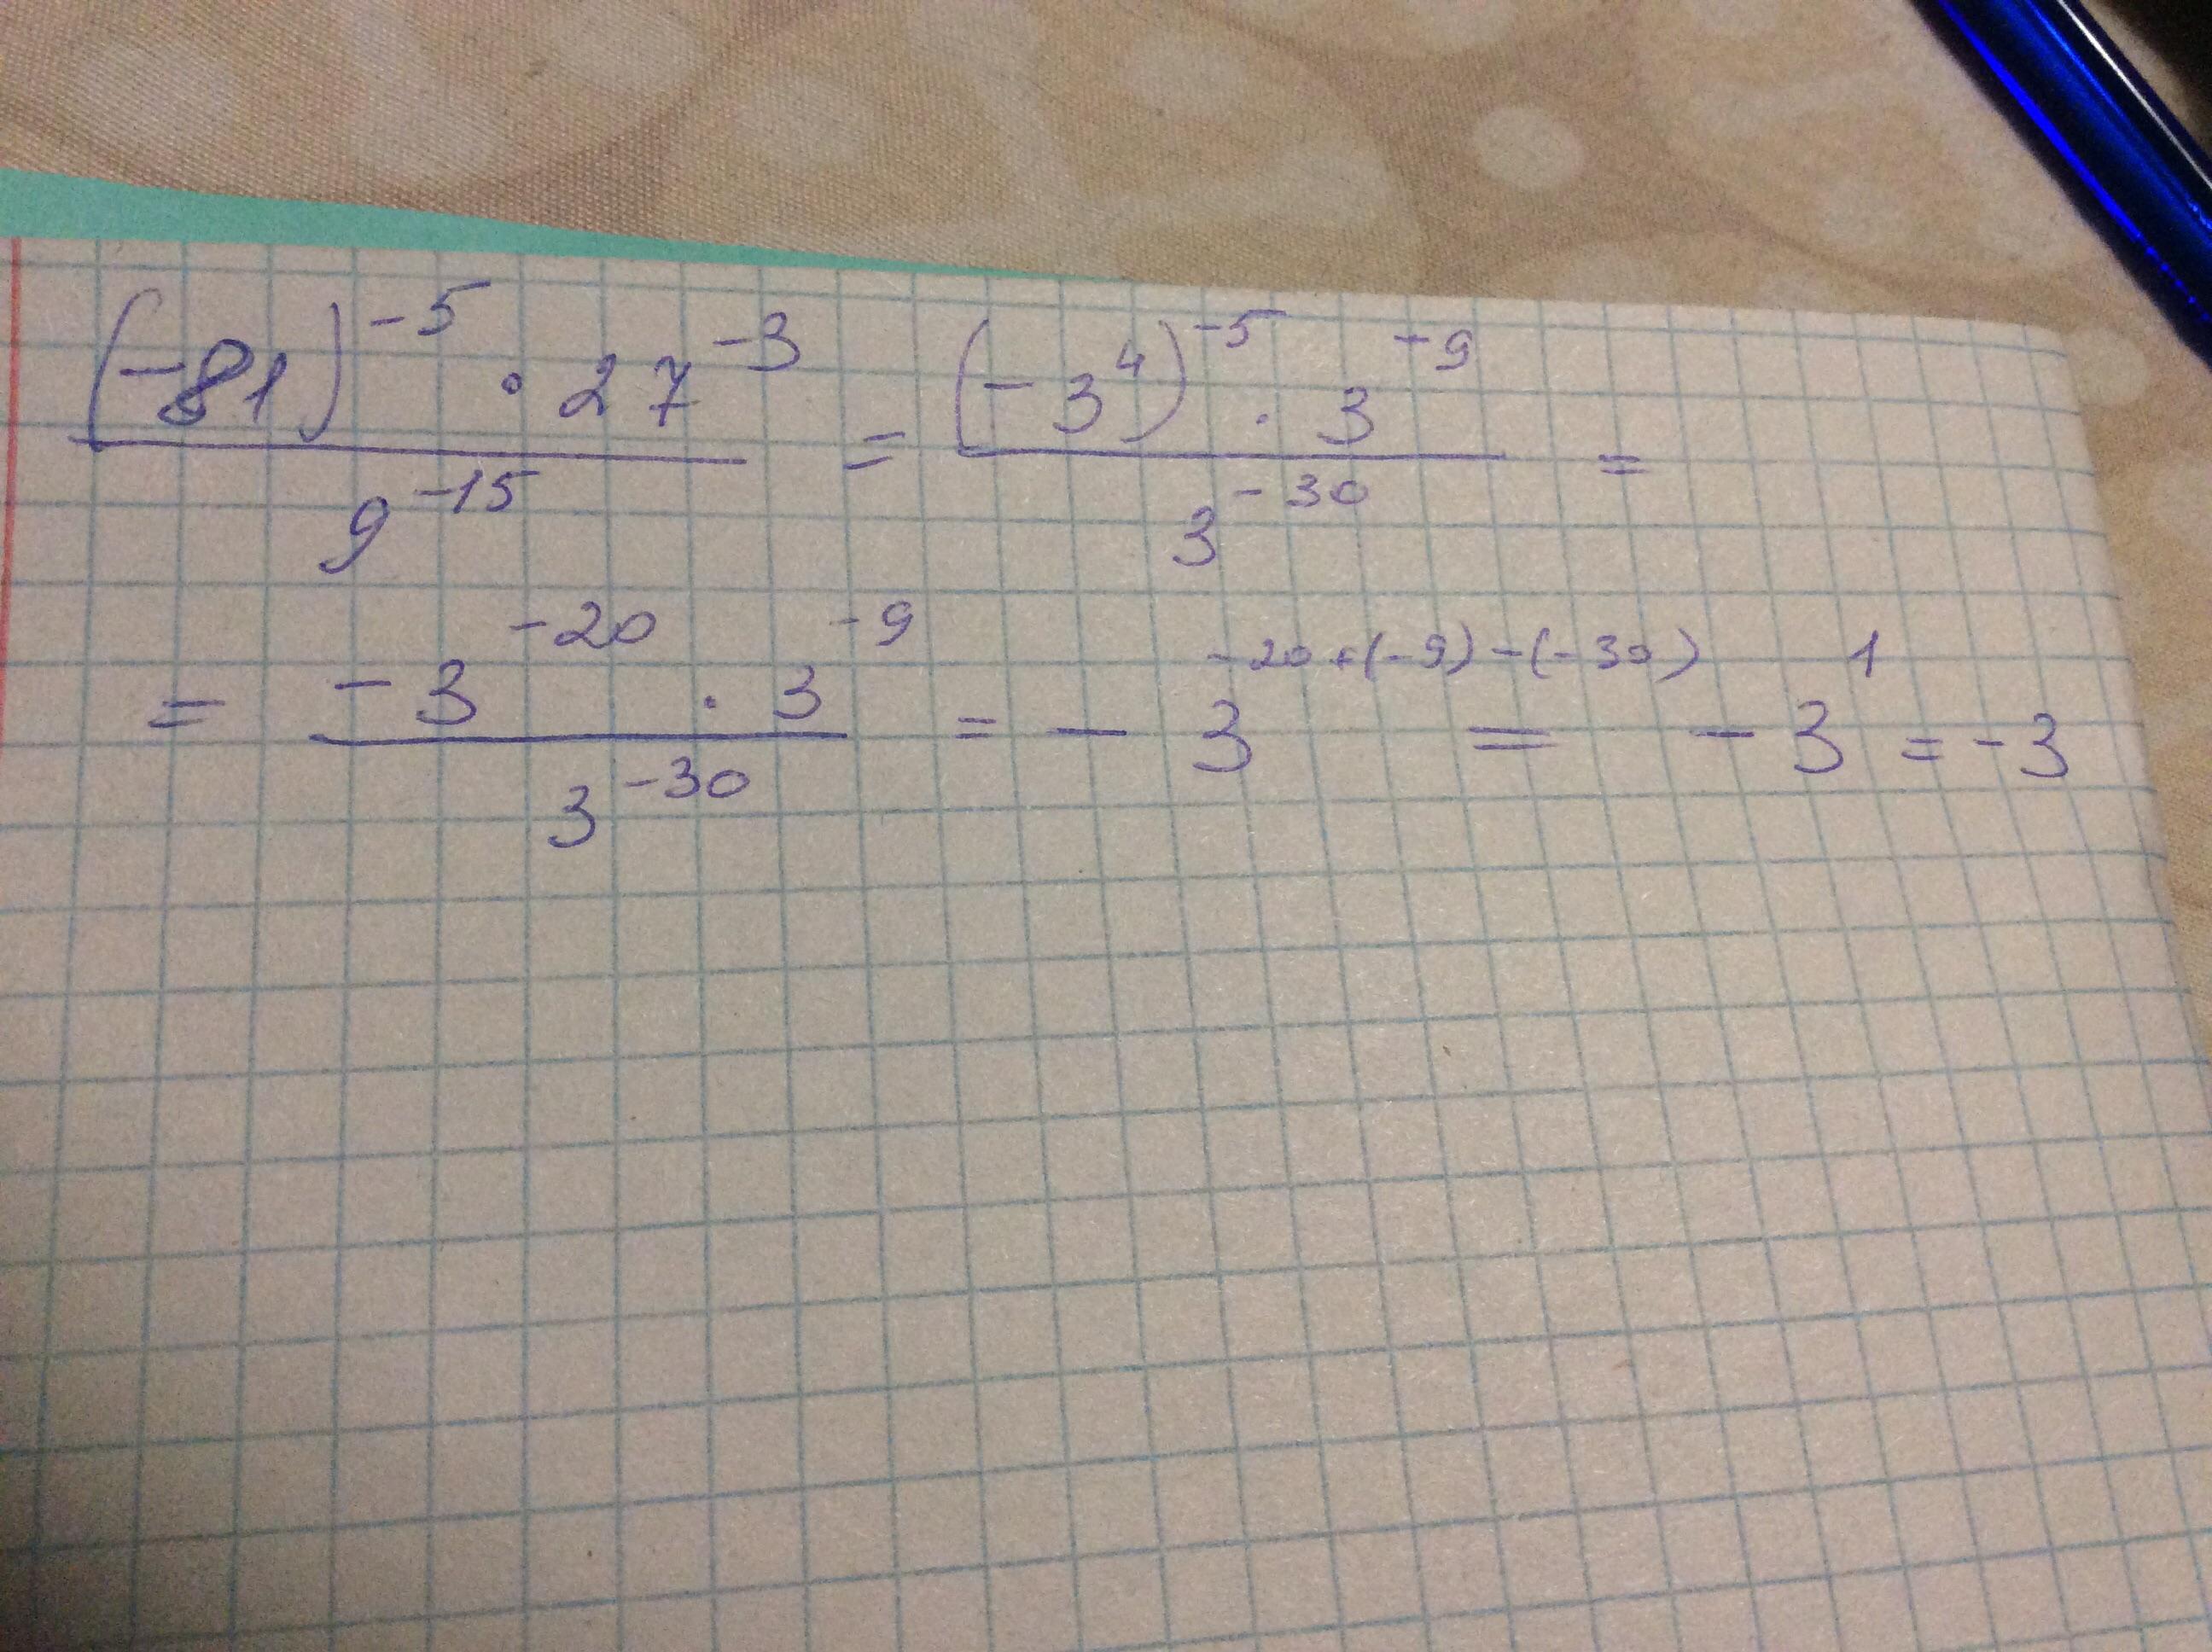 (-81)^-5 · 27^-3 / 9^-15 = (-3^4)^-5 · 3^-9 / 3^-30 =
= -3^-20 · 3^-9 / 3^-30 = - 3^-20+(-9)-(-30) = -3^1 = -3